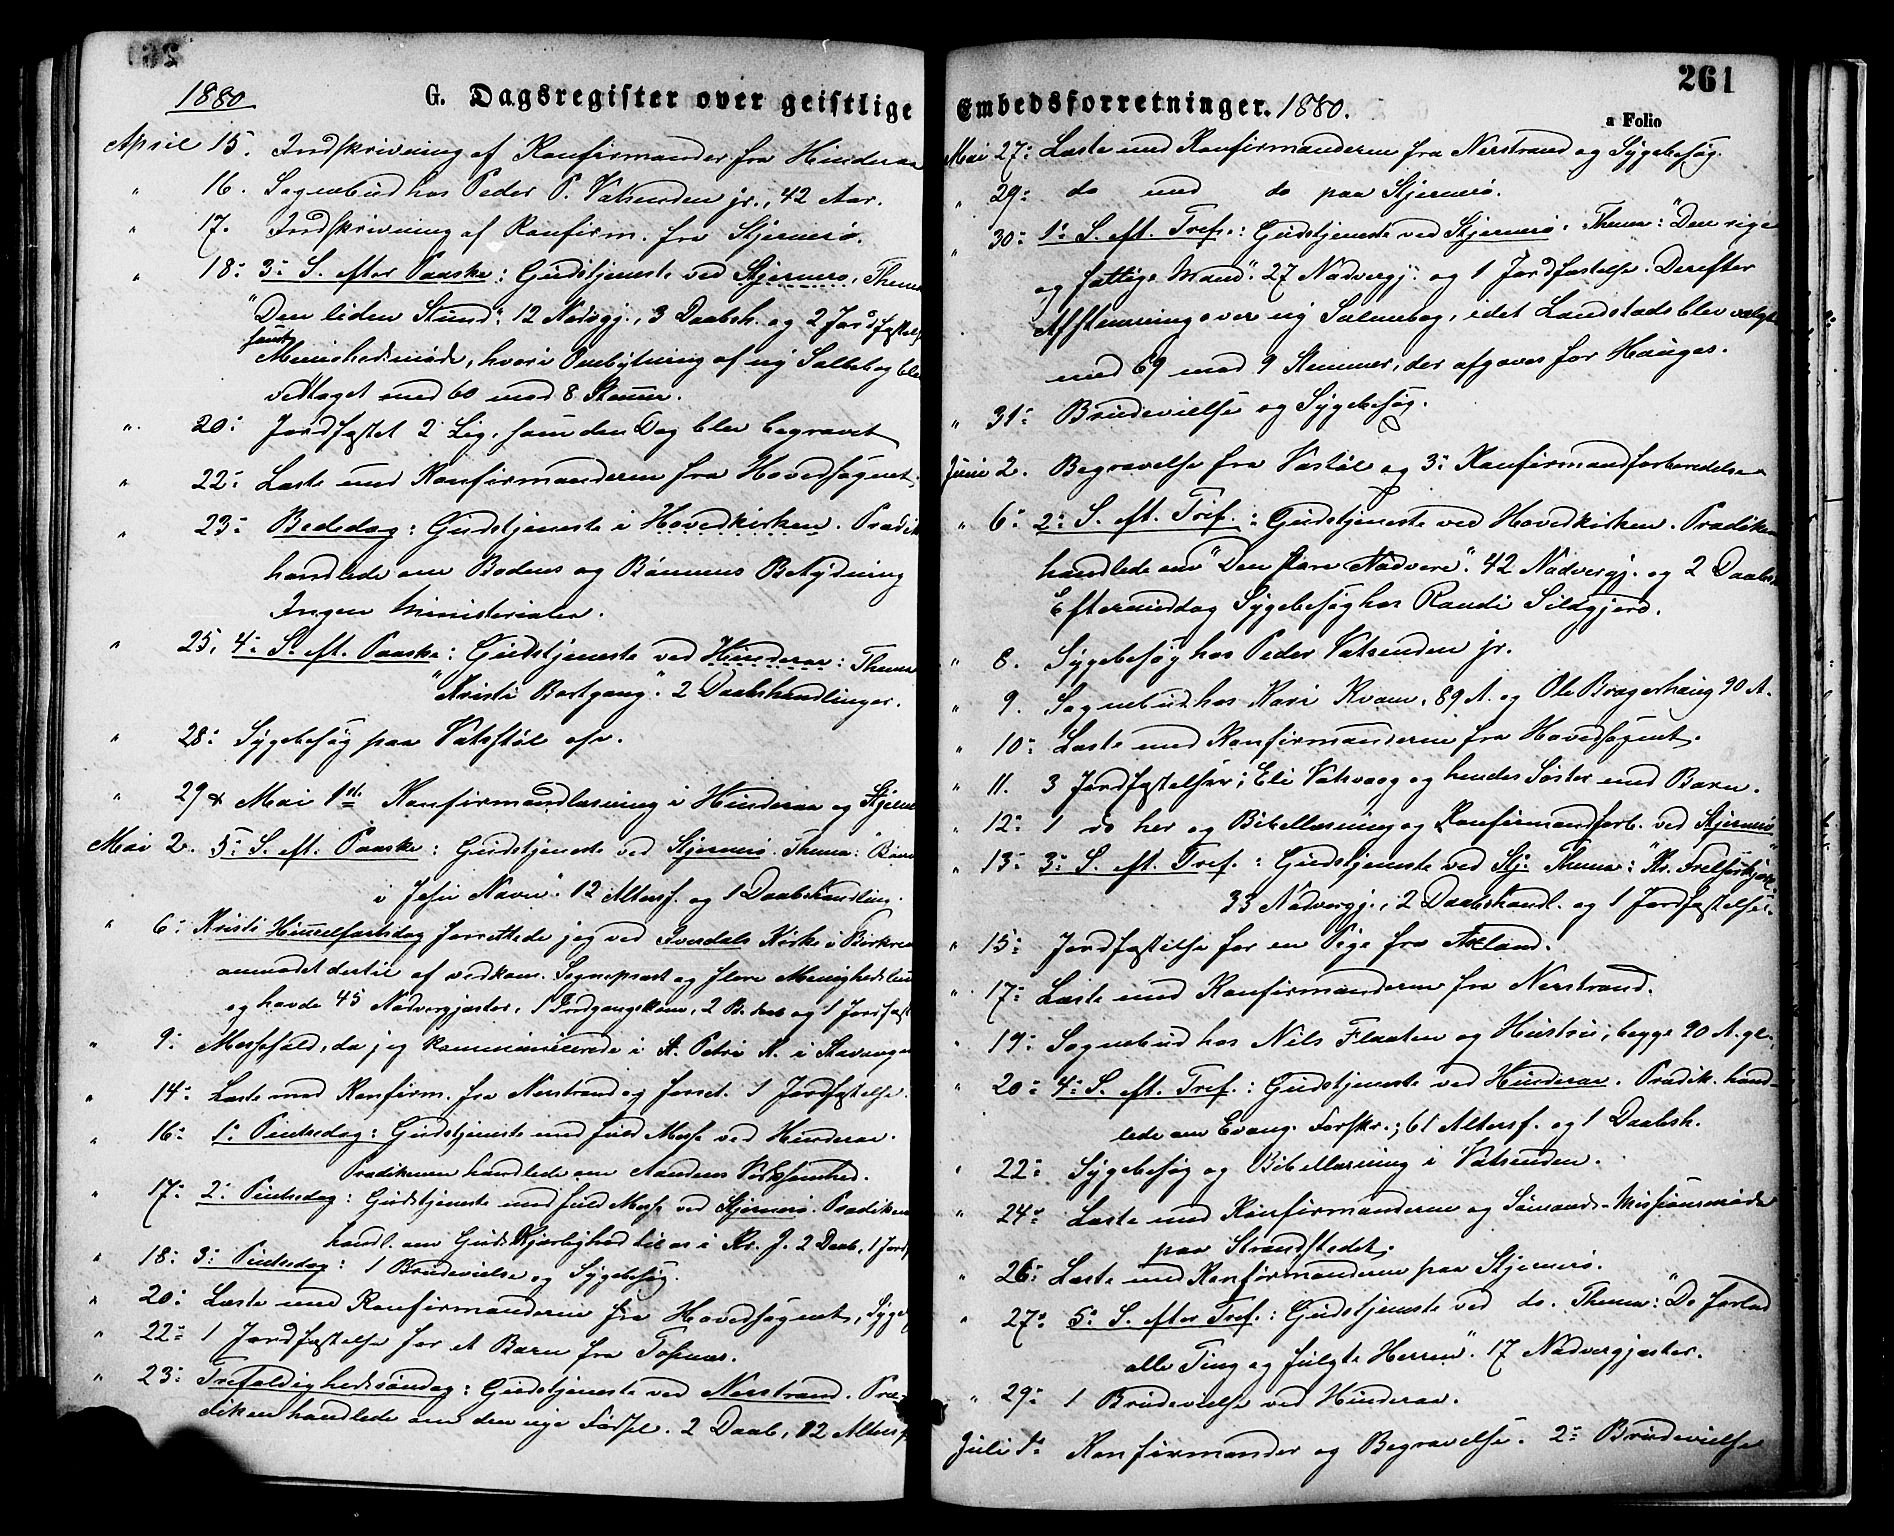 1880
G. Dagsregister over geistlige
April 15. Indskrivning af Konfirmander fra Hinderaa
" 16. Sognebud hos Peder P. Vatsenden jr., 42 Aar.
" 17. Indskrivning af Konfirm. fra Stjernerø.
" 18: 3: S. efter Paaske: Gudstjeneste ved Stjernerø, Thema
"Den liden Stund". 12 Nadvgj., 3 Daabsh. og 2 Jordfæstelse
samt
Menighedsmøde, hvori Ombytning af ny Salmebog blev
vedtaget med 60 mod 8 Stemmer.
" 20: Jordfæstet 2 Lig, som den Dag blev begravet
" 22: Læste med Konfirmanderne fra Hovedsognet.
" 23: Bededag: Gudstjeneste i Hovedkirken. Prædik
handlede om Bodens og Bønnens Betydning
Ingen Ministerialer.
" 25. 4: S. eft. Paaske: Gudstjeneste ved Hinderaa: Thema
"Kristi Bortgang". 2 Daabshandlinger.
" 28: Sygebesøg paa Vatsstøl
" 29 & Mai 1ste Konfirmandlæsning i Hinderaa og Stjerne
Mai 2. 5: S. eft. Paaske: Gudstjeneste ved Stjernerø. Thema: "Bøn
i Jesu Navn". 12 Altersf. og 1 Daabshandling.
" 6: Kristi Himmelfartsdag forrettede jeg ved Ivesdals Kirke i Birkrem
anmodet dertil af vedkom. Sognepræst og flere Menighedslem
og havde 45 Nadvergjæster, 1 Indgangskone, 2 B. Daab og 1 Jordfæst
" 9: Messefald, da jeg kommunicerede i St. Petri K. i Stavanger
" 14: Læste med Konfirm. fra Nerstrand og forret. 1 Jordfæstelse.
" 16: 1: Pintsedag: Gudstjeneste med fuld Messe ved Hinderaa.
Prædikenen handlede om Aandens Virksomhed.
" 17: 2: Pintsedag: Gudstjeneste med fuld Messe ved Stjernerø. Prædiken
handl. om Guds Kjærlighed til os i Kr. J. 2 Daab, 1 Jordf
" 18: 3: Pintsedag: 1 Brudevielse og Sygebesøg.
" 20: Læste med Konfirmanderne fra Hovedsognet, Sygeb
" 22: 1 Jordfæstelse for et Barn fra Tosnes.
" 23: Trefoldighedssøndag: Gudstjeneste ved Nerstrand. Præ-
diken handlede om den nye Fødsel. 2 Daab, 12 Altersf
261
Embedsforretninger. 1880.
a Folio
Mai 27: Læste med Konfirmanderne fra Nerstrand og Sygebesøg.
" 29: do med do paa Stjernerø.
" 30: 1: S. eft. Tref.: Gudstjeneste ved Stjernerø. Thema: "Den rige
og fattige Mand". 27 Nadvergj. og 1 Jordfæstelse. Derefter
Afstemning over ny Salmebog, idet Landstads blev valgt
med 69 mod 9 Stemmer, der afgaves for Hauges.
" 31: Brudevielse og Sygebesøg.
Juni 2. Begravelse fra Vastøl og 3: Konfirmandforberedelse
" 6: 2: S. eft. Tref.: Gudstjeneste ved Hovedkirken. Prædiken
handlede om "Den store Nadvere". 42 Nadvergj. og 2 Daabsh
Eftermiddag Sygebesøg hos Randi Sildgjerd.
" 8. Sygebesøg hos Peder Vatsenden jr.
" 9. Sognebud hos Kari Kvam, 89 A. og Ole Bragerhaug 90 A.
" 10: Læste med Konfirmanderne fra Hovedsognet.
" 11. 3 Jordfæstelser; Eli Vatsvaag og hendes Søster med Barn.
" 12: 1 do her og Bibellæsning og Konfirmandforb. ved Stjernerø
" 13: 3: S. eft. Tref.: Gudstjeneste ved Stj. Thema: "Kr. Frelserhjerte"
33 Nadvergj., 2 Daabshandl. og 1 Jordfæstelse.
" 15: Jordfæstelse for en Pige fra Axland.
" 17: Læste med Konfirmanderne fra Nerstrand.
" 19: Sognebud hos Nils Flaaten og Hustru; begge 90 A. gl.
" 20: 4: S. eft. Tref.: Gudstjeneste ved Hinderaa. Prædik. hand-
lede om Evang. Forskr.; 61 Altersf. og 1 Daabsh.
" 22: Sygebesøg og Bibellæsning i Vatsenden.
" 24: Læste med Konfirmanderne og Sømands-Missionsmøde
paa Strandstedet.
" 26: Læste med Konfirmanderne paa Stjernerø.
" 27: 5: S. efter Tref.: Gudstjeneste ved do. Thema: "De forlod
alle Ting og fulgte Herren". 17 Nadvergjæster.
" 29: 1 Brudevielse ved Hinderaa.
Juli 1: Konfirmander og Begravelse. 2: Brudevielse